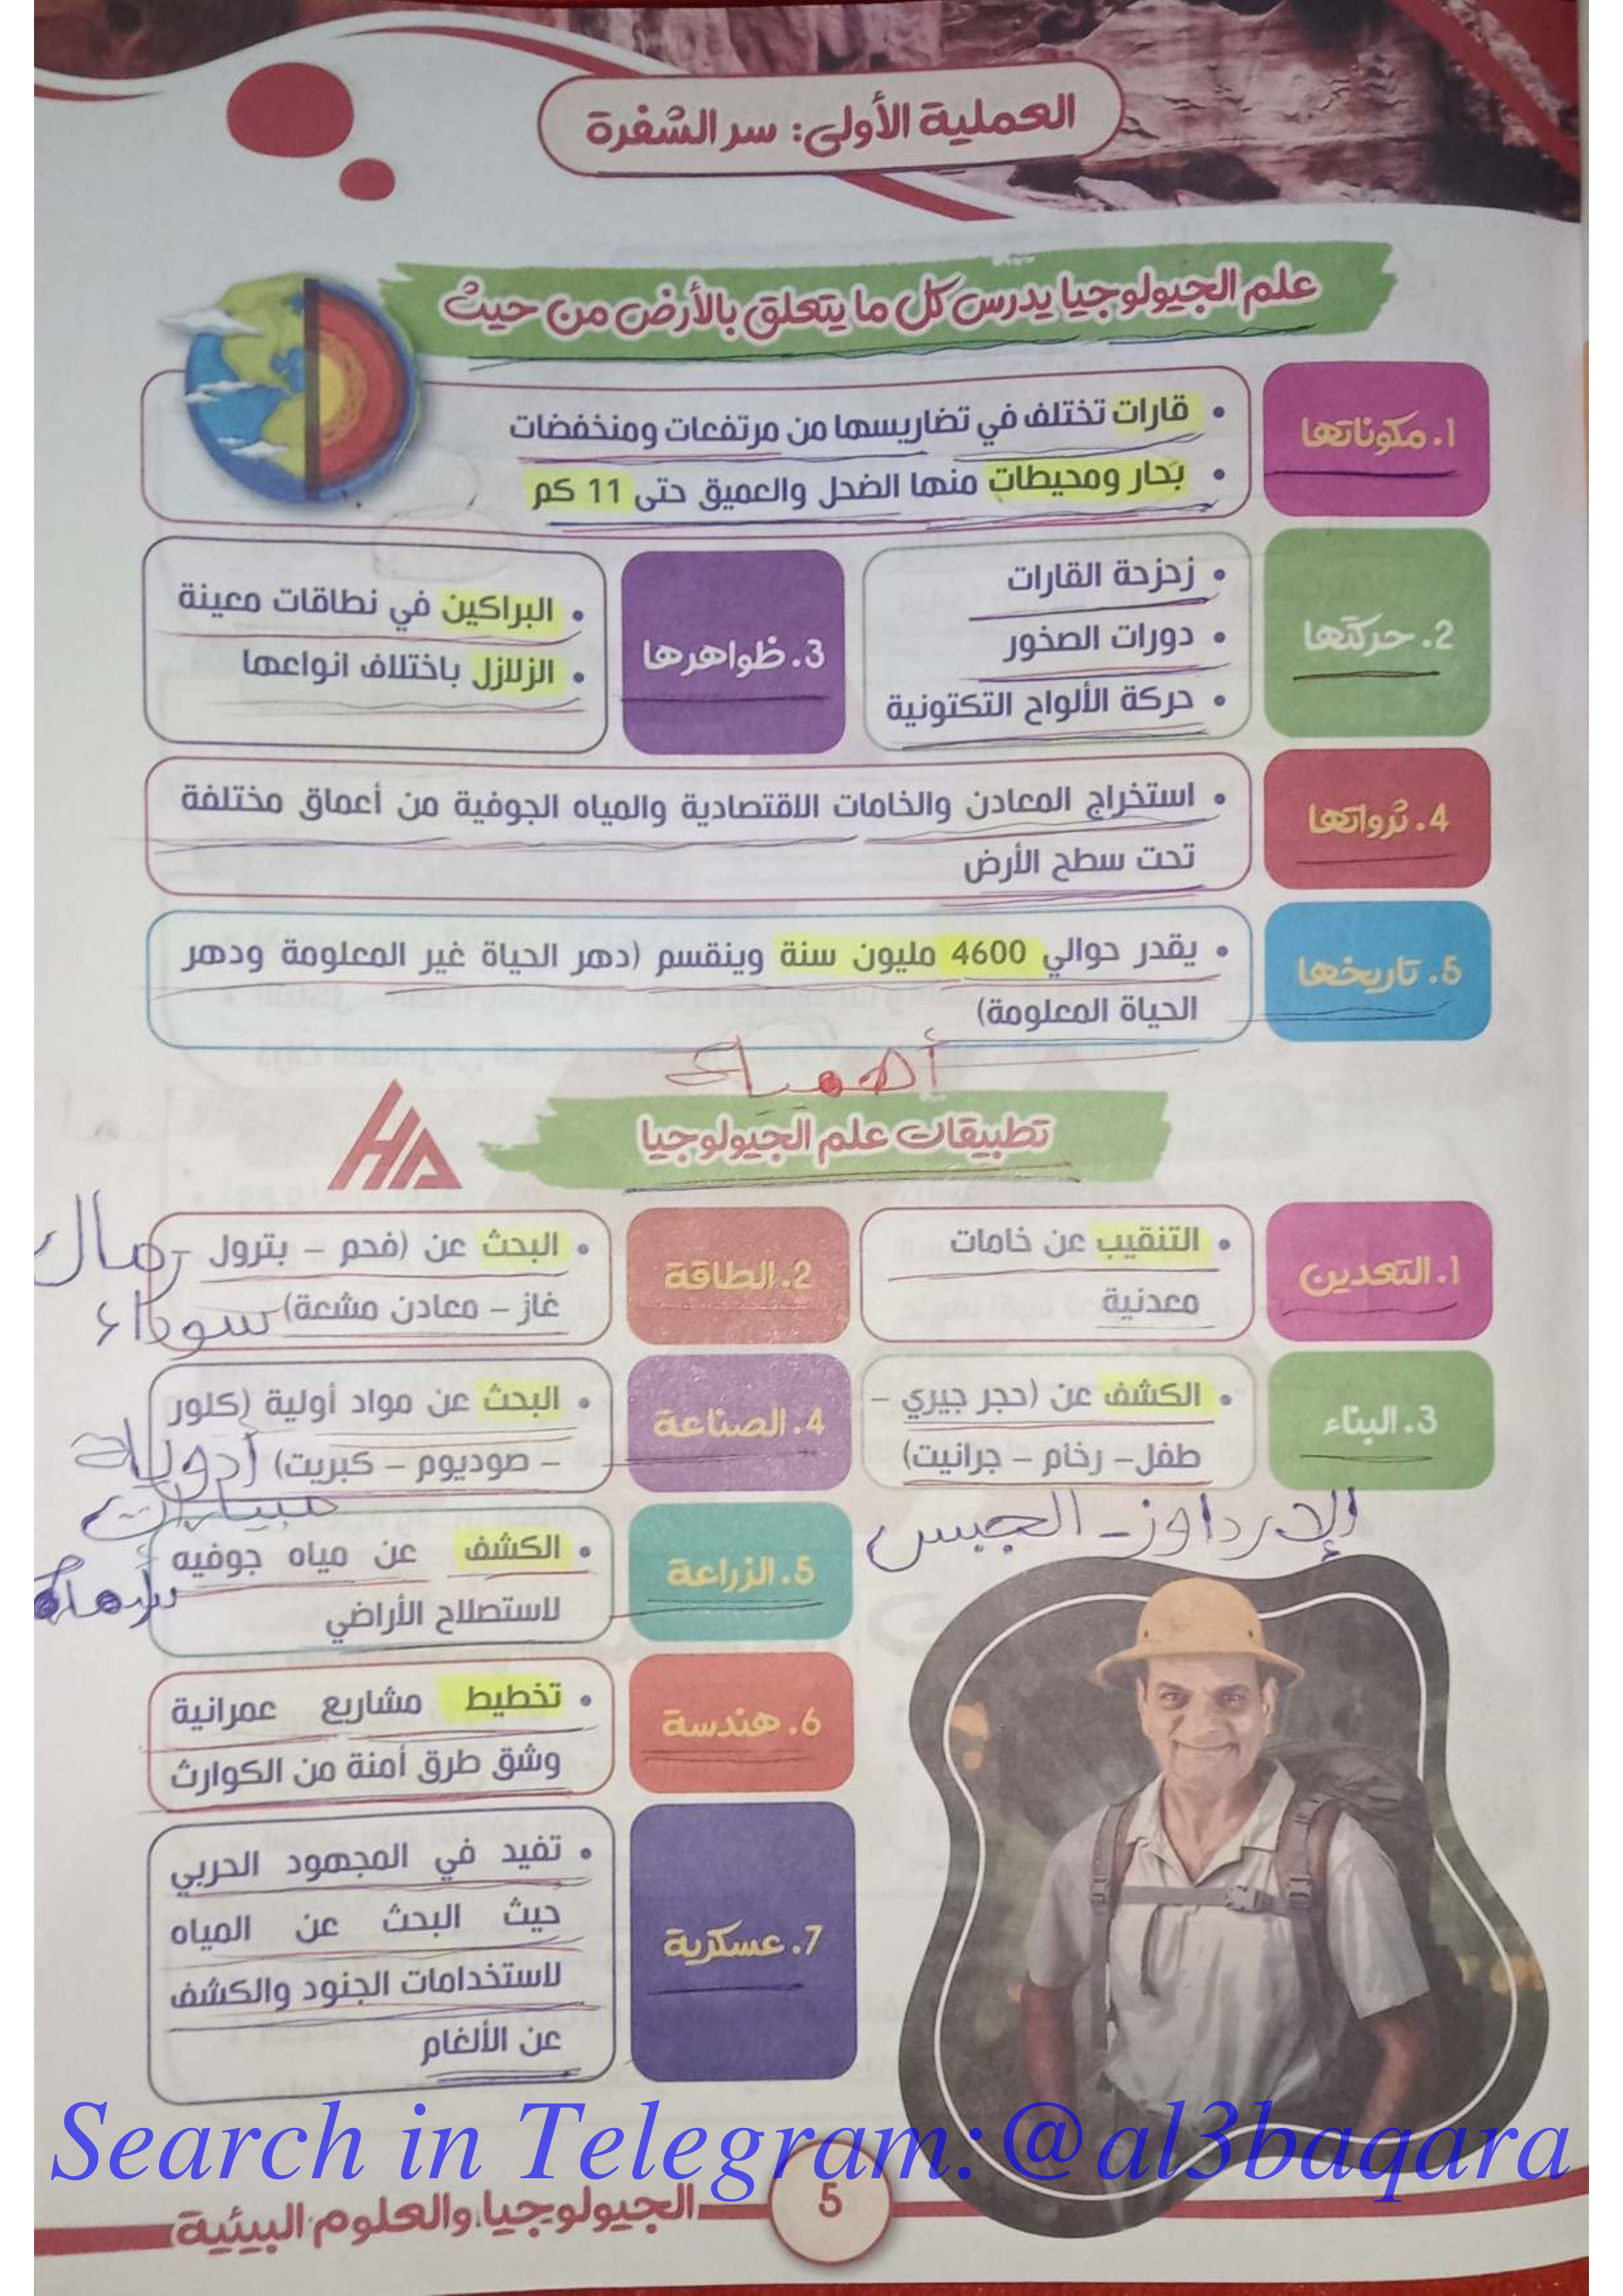 العملية الأولى: سر الشفرة
علم الجيولوجيا يدرس كل ما يتعلق بالأرض من حيث
1. مكوناتها
• قارات تختلف في تضاريسها من مرتفعات ومنخفضات
• بحار ومحيطات منها الضحل والعميق حتى 11 كم
2. حركتها
• زحزحة القارات
• دورات الصخور
• حركة الألواح التكتونية
3. ظواهرها
• البراكين في نطاقات معينة
• الزلازل باختلاف انواعها
4. ثرواتها
• استخراج المعادن والخامات الاقتصادية والمياه الجوفية من أعماق مختلفة
تحت سطح الأرض
5. تاريخها
• يقدر حوالي 4600 مليون سنة وينقسم (دهر الحياة غير المعلومة ودهر
الحياة المعلومة)
HA
تطبيقات علم الجيولوجيا
1. التعدين
• التنقيب عن خامات
معدنية
2. الطاقة
• البحث عن (فحم – بترول
غاز – معادن مشعة)
رمال
سوداء
3. البناء
• الكشف عن (حجر جيري –
طفل – رخام – جرانيت)
الإردواز - الجبس
4. الصناعة
• البحث عن مواد أولية (كلور
– صوديوم – كبريت)
أدوية
أسمدة
5. الزراعة
• الكشف عن مياه جوفيه
لاستصلاح الأراضي
6. هندسة
• تخطيط مشاريع عمرانية
وشق طرق أمنة من الكوارث
7. عسكرية
• تفيد في المجهود الحربي
حيث البحث عن المياه
لاستخدامات الجنود والكشف
عن الألغام
Search in Telegram:@al3baqara
5
الجيولوجيا والعلوم البيئية